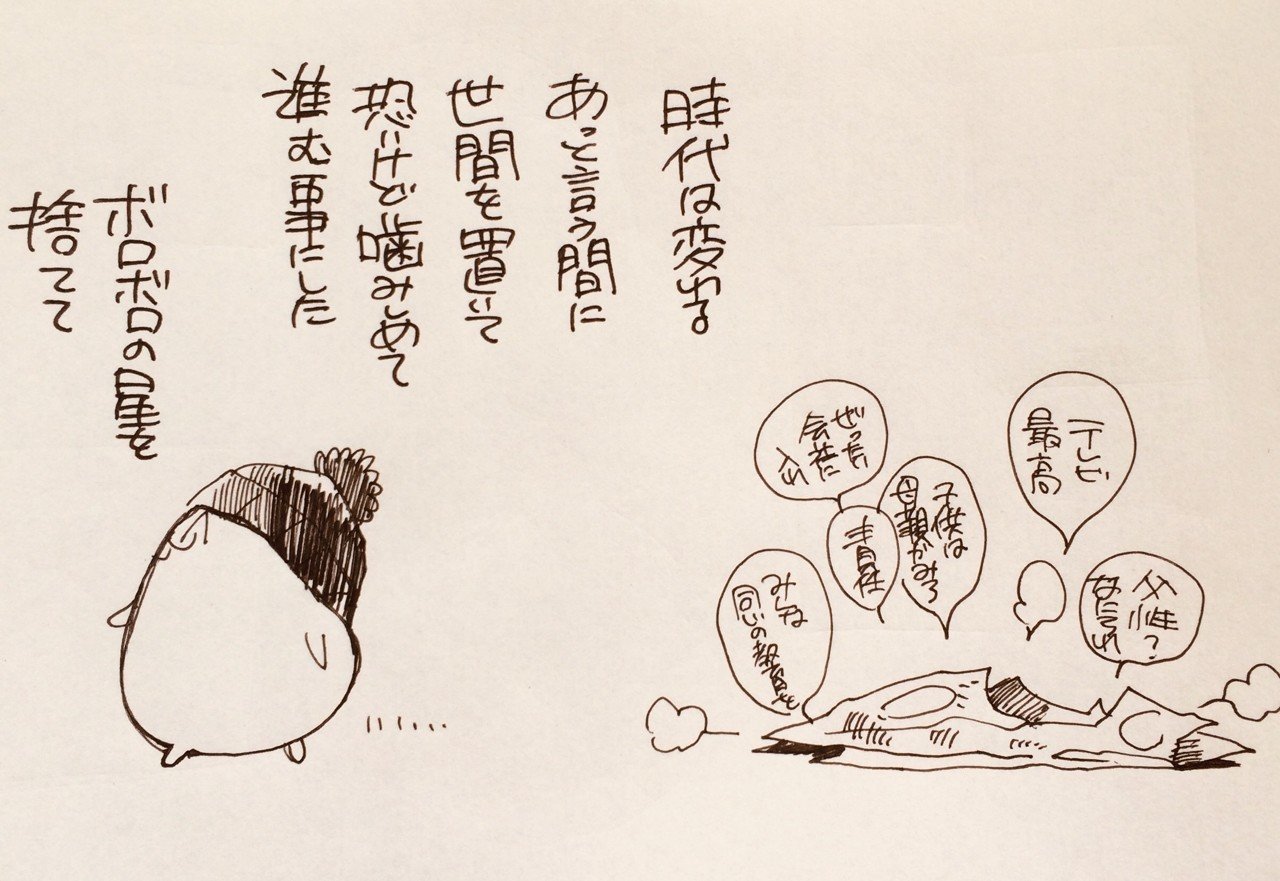 時代は変わる
あっと言う間に
世間を置いて
恐いけど噛みしめて
進む事にした
ボロボロの星を
捨てて
テレビ
最高
父性?
なにそれ
子供は
母親がみろ
ぜったい
会社に
入れ
正社
みんな
同じの教育を